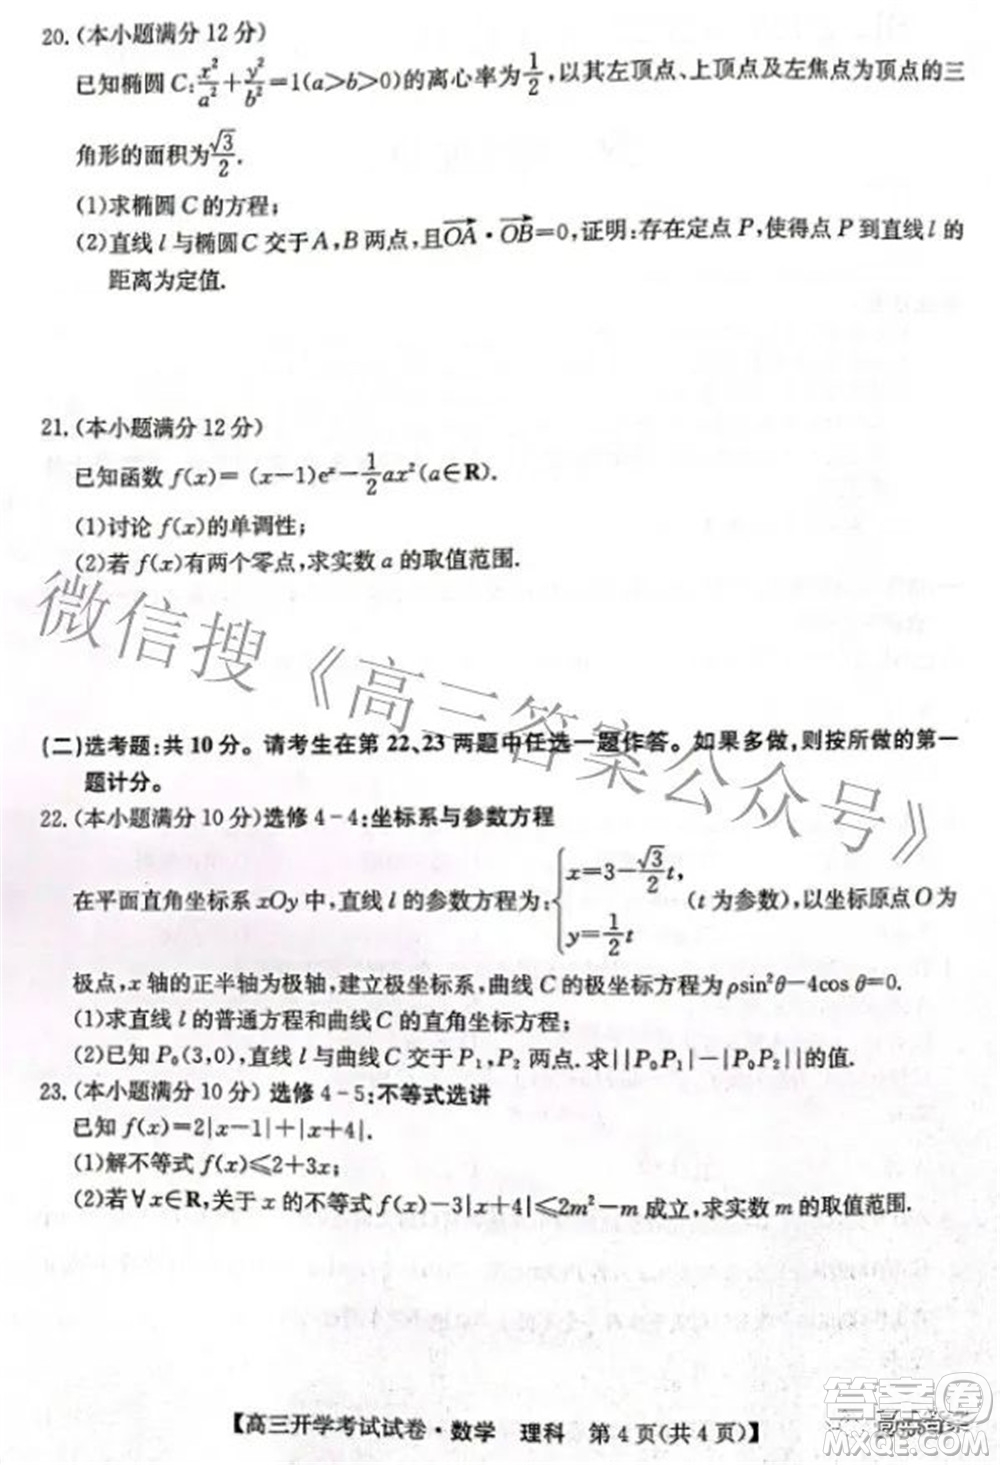 20.(本小题满分12分)
已知椭圆C:x²/a²+y²/b²=1(a>b>0)的离心率为1/2,以其左顶点、上顶点及左焦点为顶点的三
角形的面积为√3/2.
(1)求椭圆C的方程;
(2)直线l与椭圆C交于A,B两点,且OA·OB=0,证明:存在定点P,使得点P到直线l的
距离为定值.
21.(本小题满分12分)
已知函数f(x)=(x-1)eˣ-1/2ax²(a∈R).
(1)讨论f(x)的单调性;
(2)若f(x)有两个零点,求实数a的取值范围.
微信搜《高三答案公众号》
(二)选考题:共10分。请考生在第22、23两题中任选一题作答。如果多做,则按所做的第一
题计分。
22.(本小题满分10分)选修4-4:坐标系与参数方程
在平面直角坐标系xOy中,直线l的参数方程为:{x=3-√3/2t, y=1/2t (t为参数),以坐标原点O为
极点,x轴的正半轴为极轴,建立极坐标系,曲线C的极坐标方程为ρsin²θ-4cosθ=0.
(1)求直线l的普通方程和曲线C的直角坐标方程;
(2)已知P₀(3,0),直线l与曲线C交于P₁,P₂两点.求||P₀P₁|-|P₀P₂||的值.
23.(本小题满分10分)选修4-5:不等式选讲
已知f(x)=2|x-1|+|x+4|.
(1)解不等式f(x)≤2+3x;
(2)若∀x∈R,关于x的不等式f(x)-3|x+4|≤2m²-m成立,求实数m的取值范围.
【高三开学考试试卷·数学 理科 第4页(共4页)】
答案圈